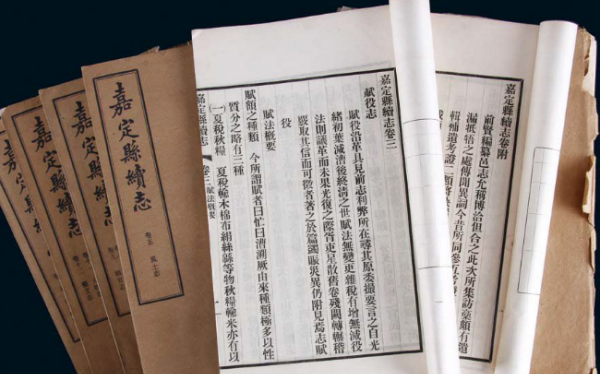 嘉定縣續志卷附
前賢編纂邑志允稱博洽但合之此次所集訪稾頗有遺
漏牴牾之處傳聞異詞今昔所同參互考
輯補遺考證二類
嘉定縣續志卷三
賦役志
賦役沿革具見前志利弊所在尋其原委撮要言之自光
緒初葉減漕後終清之世賦法無變更雜稅有增無減役
法則議革而未果光復之際胥吏星散舊卷殘闕轉輾稽
覈取其信而可徵者著之於篇蠲賑災異仍附見焉志賦
役
賦法概要
賦額之種類 今所謂賦者曰忙曰漕溯厥由來種類極多以性
質分之略有三種
(一)夏稅秋糧 夏稅輸木棉布絹絲緜等物秋糧輸米亦有以
嘉定縣續志 卷三 賦法概要
嘉定縣續志
卷五 風土志
嘉定縣續志
嘉定縣續志
嘉定縣